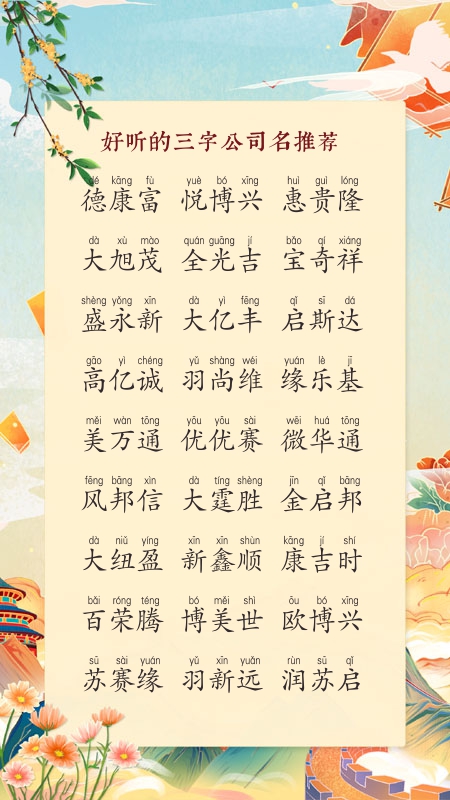 好听的三字公司名推荐
dé kāng fù yuè bó xīng huì guì lóng
德康富 悦博兴 惠贵隆
dà xù mào quán guāng jí bǎo qí xiáng
大旭茂 全光吉 宝奇祥
shèng yǒng xīn dà yì fēng qǐ sī dá
盛永新 大亿丰 启斯达
gāo yì chéng yǔ shàng wéi yuán lè jī
高亿诚 羽尚维 缘乐基
měi wàn tōng yōu yōu sài wēi huá tōng
美万通 优优赛 微华通
fēng bāng xìn dà tíng shèng jīn qǐ bāng
风邦信 大霆胜 金启邦
dà niǔ yíng xīn xīn shùn kāng jí shí
大纽盈 新鑫顺 康吉时
bǎi róng téng bó měi shì ōu bó xīng
百荣腾 博美世 欧博兴
sū sài yuán yǔ xīn yuǎn rùn sū qǐ
苏赛缘 羽新远 润苏启